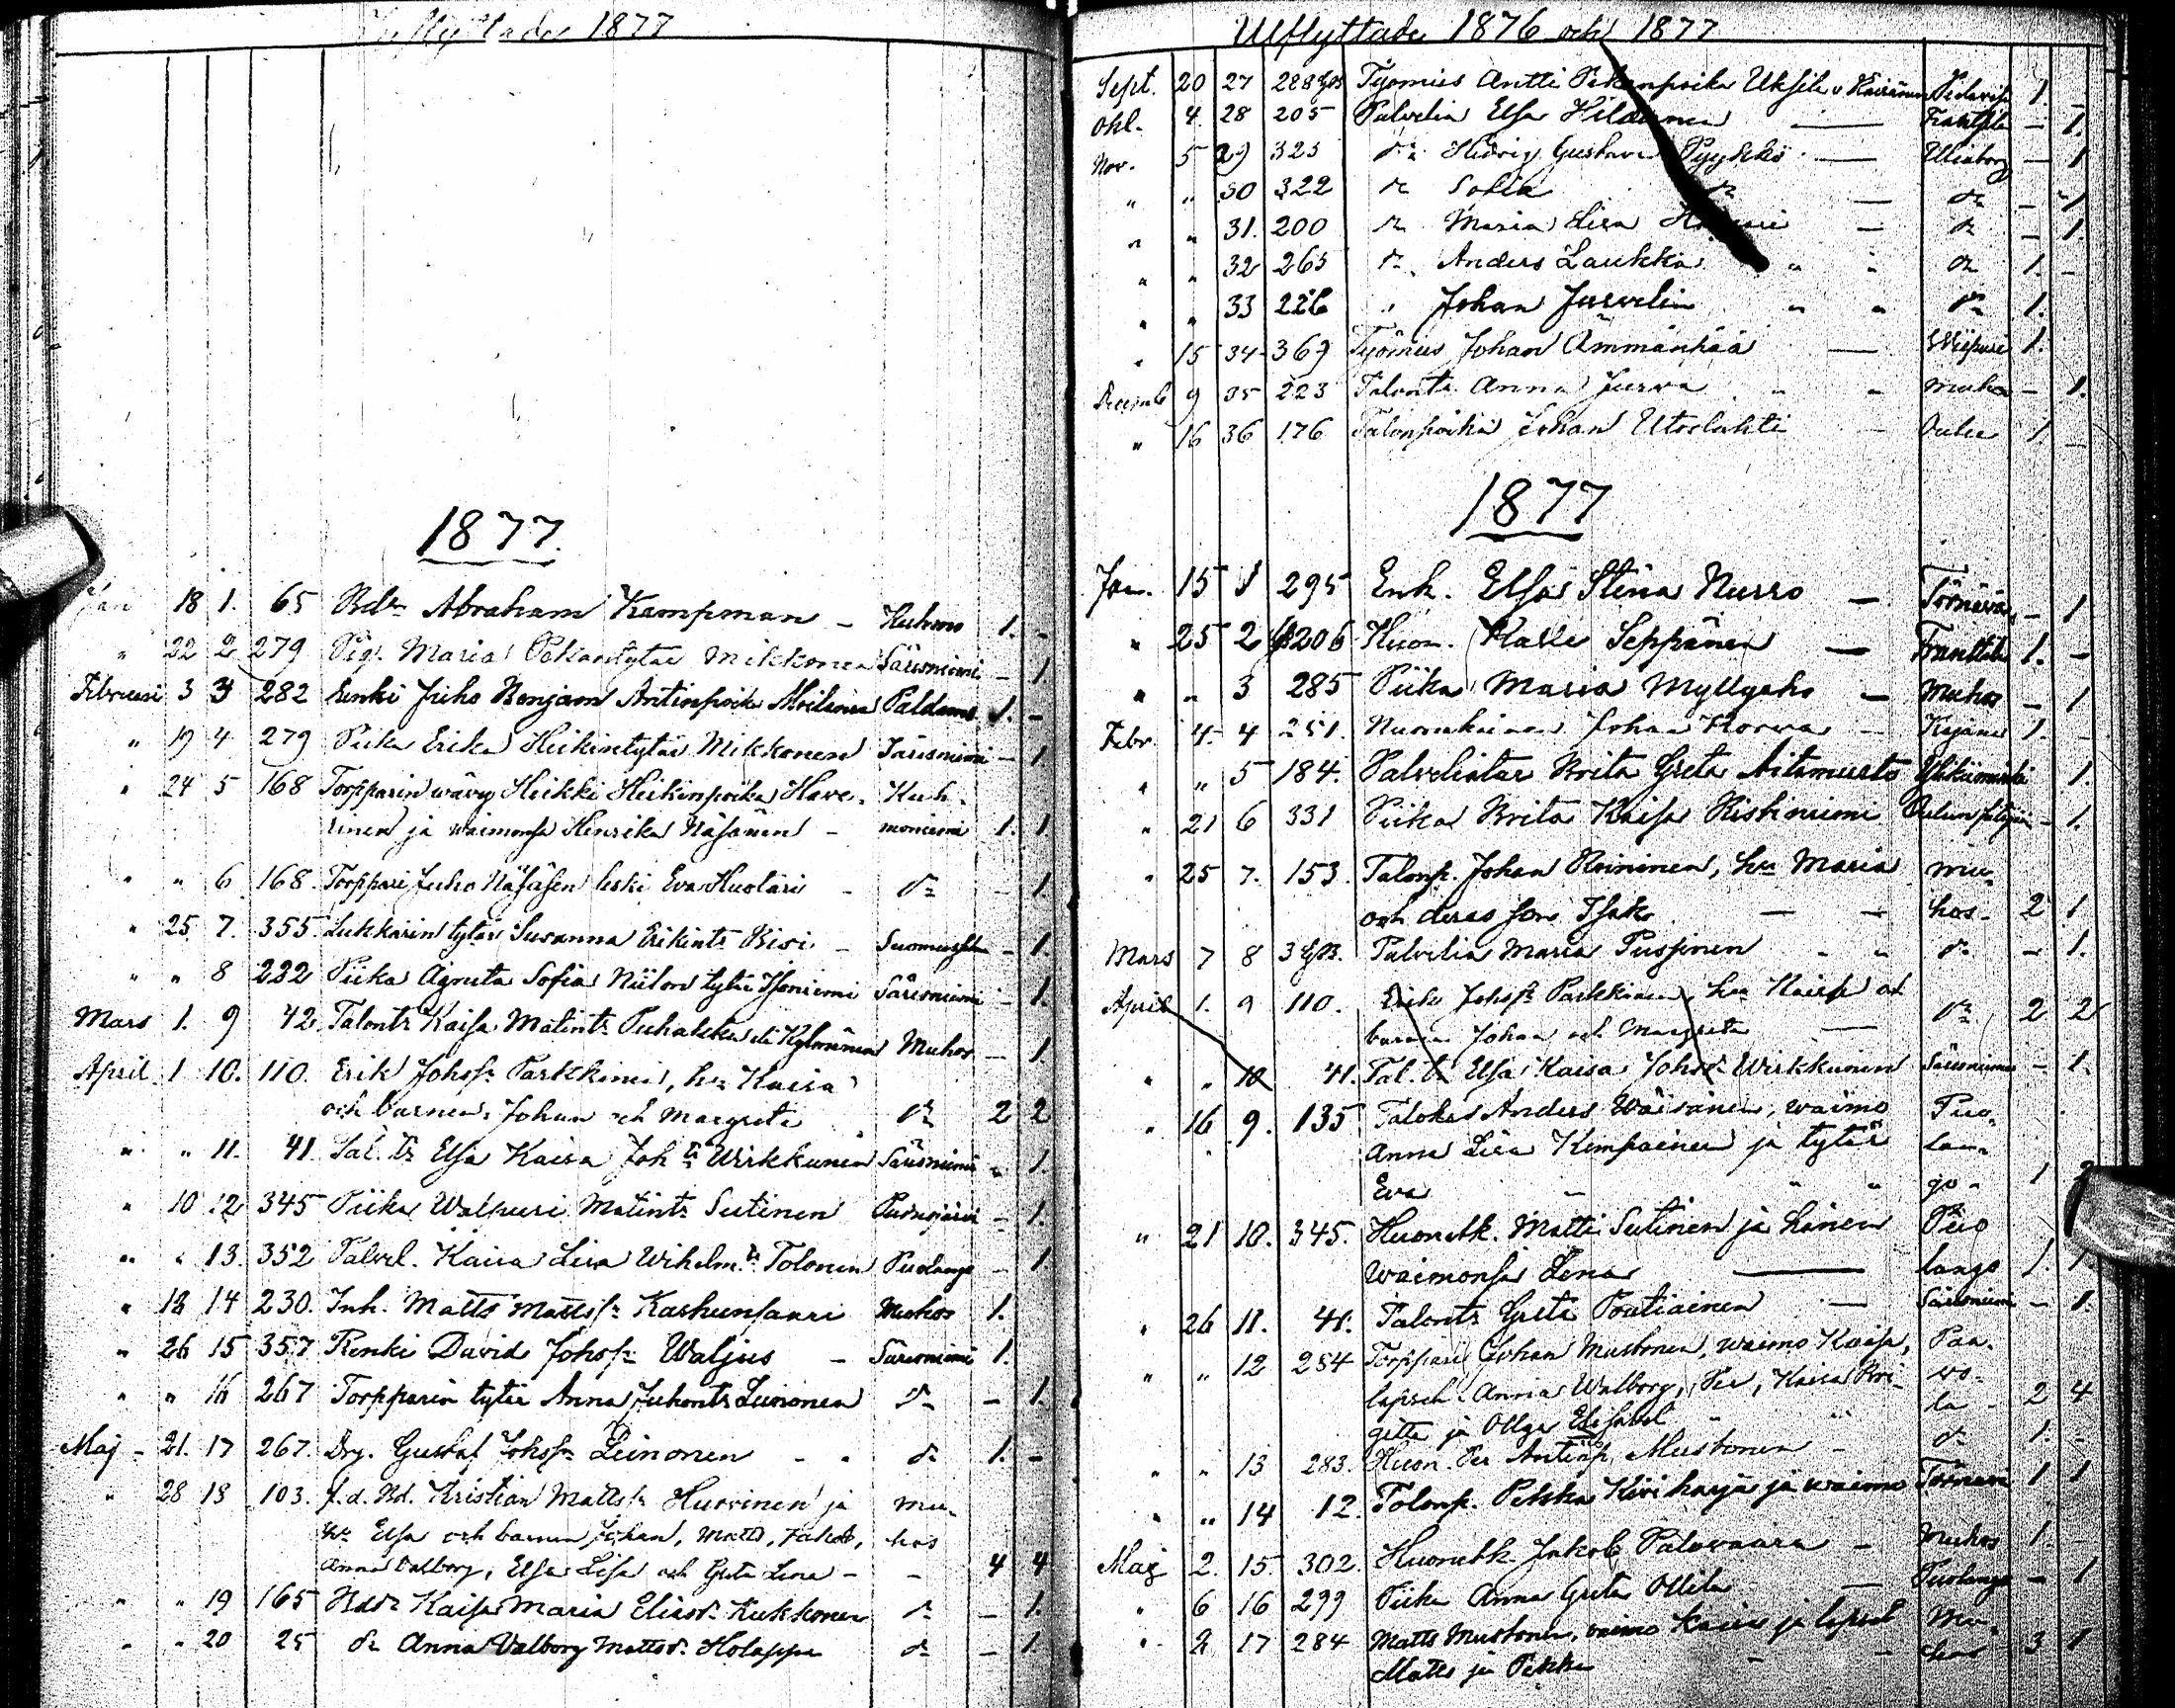 Inflyttade 1877
1877.
Jan 18 1. 65 Bdr Abraham Kempman – Kuhmo 1. –
" 22 2 279 Pig. Maria Pekantytär Mikkonen Säresniemi – 1
Februari 3 3 282 Renki Juho Benjam Antinpoika Moilanen Paldamo 1. –
" 19 4 279 Piika Erika Heikintytär Mikkonen Säresniemi – 1
" 24 5 168 Torpparin wävy Heikki Heikinpoika Have- Kuh-
rinen ja waimonsa Henrika Näsänen – moniemi 1. 1
" " 6 168. Torppari Juho Näsäsen leski Eva Huotari – do – 1.
" 25 7. 355. Lukkarin tytär Susanna Erikints Bisi – Suomussalmi – 1.
" " 8 222 Piika Agneta Sofia Niilon tytär Isoniemi Säresniemi – 1.
Mars 1. 9 42. Talonts Kaisa Matints Puhakka eli Kylmänen Muhos – 1
April. 1 10. 110. Erik Johss. Parkkinen, hu Kaisa
och barnen Johan och Margreta do 2 2
" " 11. 41. Tal. tr Elsa Kaisa Joh tr Wirkkunen Säresniemi " 1
" 10 12 345 Piika Walpuri Matints Sutinen Pudasjärvi – 1.
" " 13. 352 Palvel. Kaisa Lisa Wihelm. tr Tolonen Puolango – 1
" 12 14 230. Inh. Matts Mattss. Karhunsaari Muhos 1.
" 26 15 357 Renki David Johss. Waljus – Säresniemi 1.
" " 16 267 Torpparin tytär Anna Juhonts Leinonen do – 1.
Maj – 21. 17 267. Drg. Gustaf Johss. Leinonen " " do 1. –
" 28 18 103. f.d. Bd. Kristian Mattss. Hurrinen ja mu-
hu Elsa och barnen Johan, Matts, Jakob, hos
Anna Valborg, Elsa Lisa och Greta Lena – – 4 4
" " 19 165 Bdr Kaisa Maria Eliasd. Kukkonen do – 1.
" " 20 25 do Anna Valborg Mattsd. Holappa do – 1.
Utflyttade 1876 och 1877
Sept. 20 27 228 Työmies Antti Pekanpoika Uksila v Kairanen Pidavisa 1. –
Okt. 4. 28 205 Palvelia Elsa Hildunen — Frantsila – 1.
Nov. 5 29 323 do Hedvig Gustava Pyykkö — Uleåborg – 1
" " 30 322 do Sofia do — do – 1
" " 31. 200 do Maria Lisa — do – 1.
" " 32 265 do Anders Laukka " " do 1. –
" " 33 226 " Johan Jurvelin " " do 1.
" 15 34 369 Työmies Johan Ämmänpää — Wiipuri 1.
Decemb 9 35 223 Talonts. Anna Jurva " " Muhos – 1.
" 16 36 176 Talonpoika Johan Utoslahti – Oulu 1 –
1877
Jan. 15 1 295 Enk. Elsa Stina Nurro — Törnävä – 1
" 25 2 206 Huon. Kalle Seppänen — Frantsila 1. –
" " 3 285 Piika Maria Myllyaho – Muhos – 1
Febr. 4. 4 251. Nuorukainen Johan Korva – Kajana 1. –
" " 5 184. Palveliatar Brita Greta Aitamurto Ylikiiminki 1.
" 21 6 331 Piika Brita Kaisa Ristiniemi Oulun pitäjä – 1.
" 25 7. 153. Talonp. Johan Roininen, hu Maria mu-
och deras son Isak — – hos – 2 1
Mars 7 8 Palvelia Maria Pussinen " " do – 1.
April 1. 9 110. Erik Johss. Parkkinen, hu Kaisa och
barnen Johan och Margreta — do 2 2
" " 10 41. Tal. tr Elsa Kaisa Johsdr Wirkkunen Säresniemi – 1.
" 16 9. 135 Talokas Anders Wäisänen, waimo Puo-
Anna Lisa Kempainen ja tytär lan-
Eva – " " go – 1 2
" 21 10. 345. Huonetk. Matti Sutinen ja hänen Puo
waimonsa Lena — lango 1. 1
" 26 11. 41. Talonts Greta Poutiainen — Säresniemi – 1.
" " 12 284 Torppari Johan Mustonen, waimo Kaisa, Paa-
lapset Anna Walborg, Per, Kaisa Bri- wo-
gitta ja Ollga Elisabet " " la – 2 4
" " 13 283. Huon. Per Antinp. Mustonen – do 1. –
" " 14 12. Talonp. Pekka Kiviharja ja waimo Törnävä 1 1
Maj 2. 15. 302. Huonetk. Jakob Palovaara – Muhos 1. –
" 6 16 299 Piika Anna Greta Ollila — Puolango – 1
" 2 17 284 Matts Mustonen, waimo Kaisa ja lapset Mu-
Matts ja Pekka – – hos 3 1